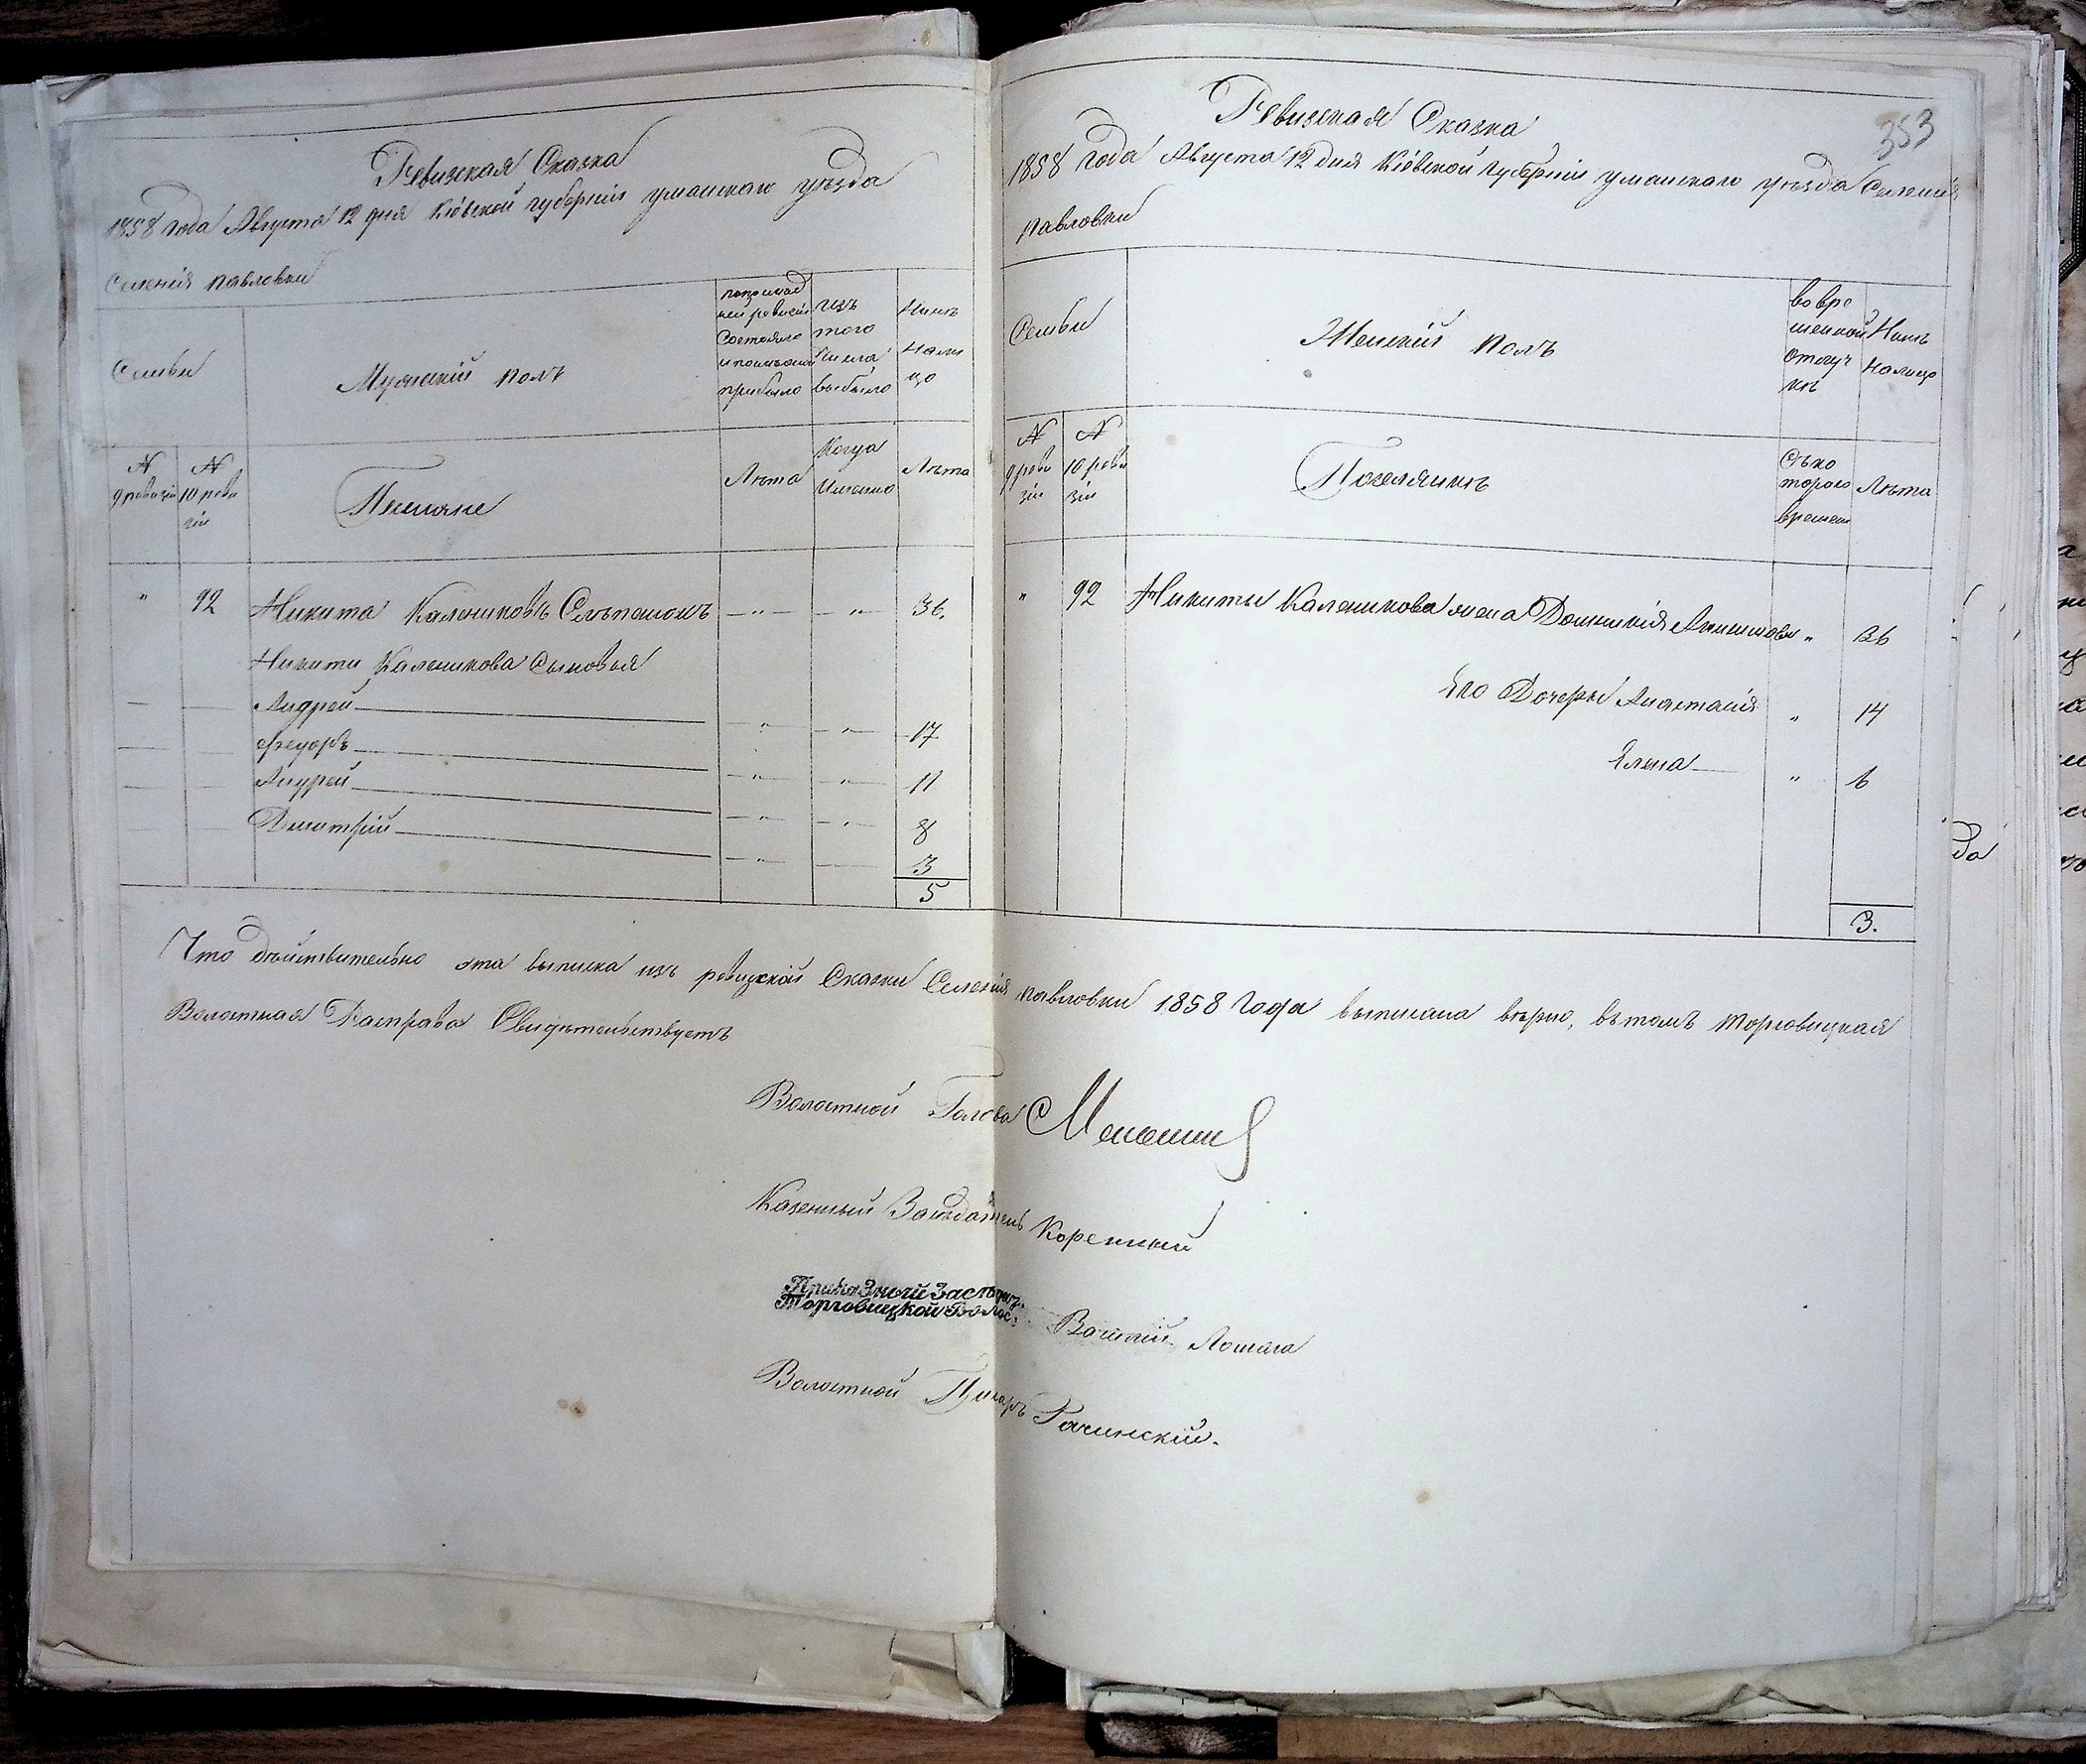 Ревизская Сказка
1858 года Августа 12 дня Кіевской губерніи уманскаго уѣзда
Селенія павловки
Семьи
Мужескій полъ
по послѣд
ней ревизіи
состояло
и послѣ оной
прибыло
Изъ
того
числа
выбыло
Нынѣ
Нали
цо
N
9 ревизіи
N
10 реви
зіи
Поселяне
Лѣта
Когда
Именно
Лѣта
" 92 Никита Калениковъ — " — — " — 36.
Никиты Каленикова Сыновья
Андрей — " — " — 17
Федоръ — " — " — 11
Андрей — " — " — 8
Димитрій — " — 3
5
353
Ревизская Сказка
1858 Года Августа 12 дня Кіевской губерніи уманскаго уѣзда Селенія
павловки
Семьи
Женскій полъ
во вре
менной
отлуч
кѣ
Нынѣ
Налицо
N
9 реви
зіи
N
10 реви
зіи
Поселянинъ
Съ ко
тораго
времени
Лѣта
" 92 Никиты Каленикова жена Домникія " 36
Его Дочери Анастасія " 14
Елена — " 6
3.
Что дѣйствительно эта выписка изъ ревизской Сказки Селенія павловки 1858 Года выписана вѣрно, въ томъ Торговицкая
Волостная Расправа Свидѣтельствуетъ
Волостной Голова
Казенный Засѣдатель Коренный
Приказный Засѣдат.
Торговицкой Волос:
Василій Лошага
Волостной Писарь Рачинскій.
да